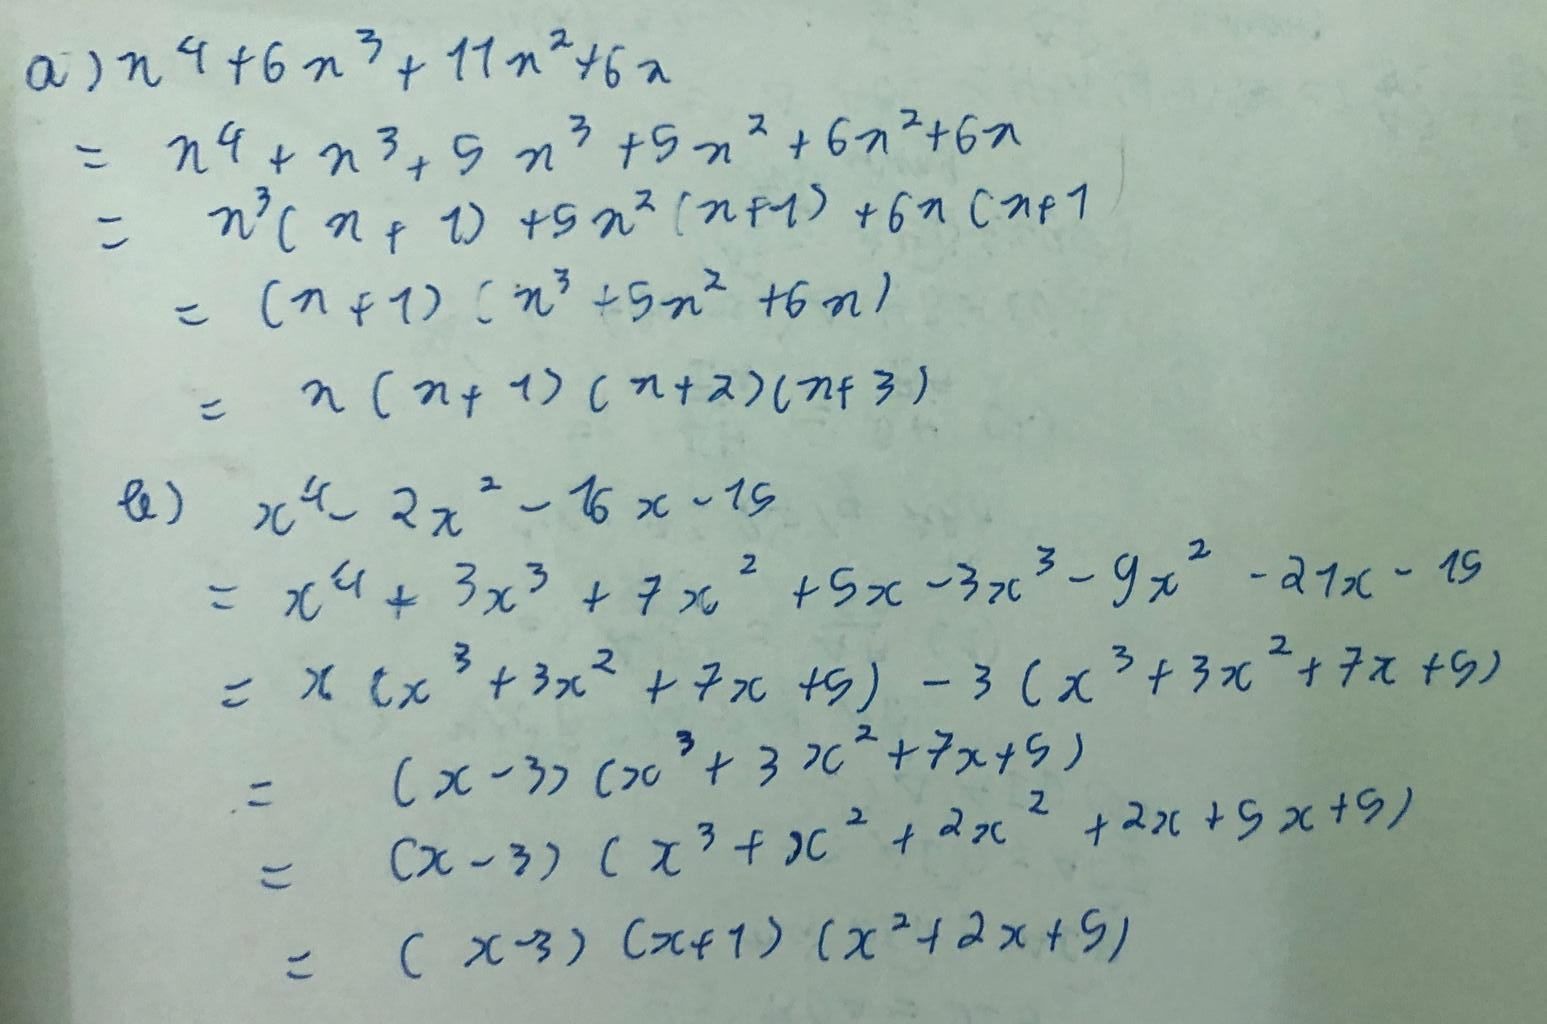 a) n⁴ + 6n³ + 11n² + 6n
= n⁴ + n³ + 5n³ + 5n² + 6n² + 6n
= n³(n + 1) + 5n²(n + 1) + 6n(n + 1
= (n + 1)(n³ + 5n² + 6n)
= n(n + 1)(n + 2)(n + 3)
b) x⁴ - 2x² - 16x - 15
= x⁴ + 3x³ + 7x² + 5x - 3x³ - 9x² - 21x - 15
= x(x³ + 3x² + 7x + 5) - 3(x³ + 3x² + 7x + 5)
= (x - 3)(x³ + 3x² + 7x + 5)
= (x - 3)(x³ + x² + 2x² + 2x + 5x + 5)
= (x - 3)(x + 1)(x² + 2x + 5)